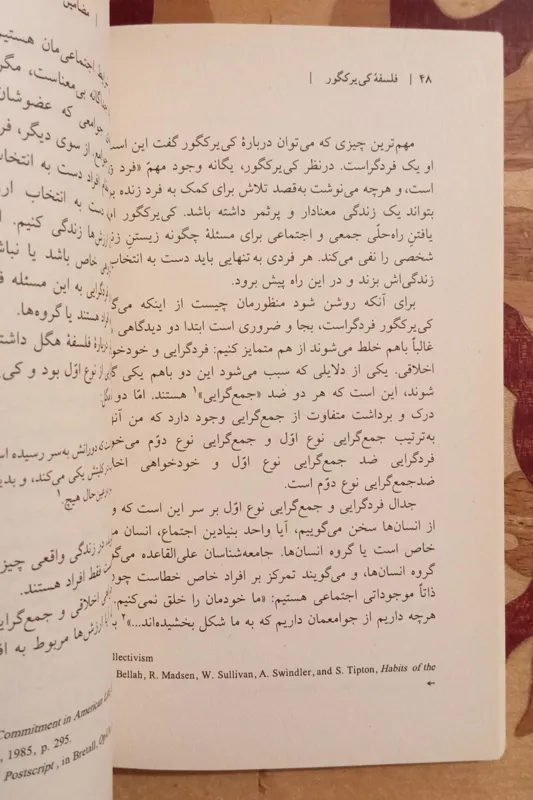 ۴۸ | فلسفهٔ کی‌یرکگور |
مهم‌ترین چیزی که می‌توان دربارهٔ کی‌یرکگور گفت این است
او یک فردگراست. درنظر کی‌یرکگور، یگانه وجود مهمّ «فرد
است، و هرچه می‌نوشت به‌قصد تلاش برای کمک به فرد زنده
بتواند یک زندگی معنادار و پرثمر داشته باشد. کی‌یرکگور
یافتنِ راه‌حلّی جمعی و اجتماعی برای مسئلهٔ چگونه زیستنِ
شخصی را نفی می‌کند. هر فردی به‌تنهایی باید دست به انتخاب
زندگی‌اش بزند و در این راه پیش برود.
برای آنکه روشن شود منظورمان چیست از اینکه
کی‌یرکگور فردگراست، بجا و ضروری است ابتدا دو دیدگاهی
غالباً باهم خلط می‌شوند از هم متمایز کنیم: فردگرایی و
اخلاقی. یکی از دلایلی که سبب می‌شود این دو باهم یکی
شوند، این است که هر دو ضد «جمع‌گرایی»۱ هستند. امّا دو
درک و برداشت متفاوت از جمع‌گرایی وجود دارد که من
به‌ترتیب جمع‌گرایی نوع اوّل و جمع‌گرایی نوع دوّم
فردگرایی ضد جمع‌گرایی نوع اوّل و خودخواهی
ضدجمع‌گرایی نوع دوّم است.
جدال فردگرایی و جمع‌گرایی نوع اوّل بر سر این است که
از انسان‌ها سخن می‌گوییم، آیا واحد بنیادین اجتماع، انسان
خاص است یا گروه انسان‌ها. جامعه‌شناسان علی‌القاعده
گروه انسان‌ها، و می‌گویند تمرکز بر افراد خاص خطاست
ذاتاً موجوداتی اجتماعی هستیم: «ما خودمان را خلق نمی‌کنیم.
هرچه داریم از جوامعمان داریم که به ما شکل بخشیده‌اند...»۲
llectivism
Bellah, R. Madsen, W. Sullivan, A. Swindler, and S. Tipton, Habits of the
←
| مضامین
اجتماعی‌مان هستیم
بی‌معناست، مگر
جوامعی که عضوشان
از سوی دیگر،
افراد دست به انتخاب
دست به انتخاب
زندگی کنیم.
خاص باشد یا
فردگرایی به این مسئله
هستند یا گروه‌ها.
فلسفهٔ هگل داشته
از نوع اوّل بود و
دورانش به‌سر رسیده
یکی می‌کند، و
هیچ.۱
در زندگی واقعی چیز
فقط افراد هستند.
اخلاقی و جمع‌گرایی
ارزش‌ها مربوط به
Commitment in American
, 1985, p. 295.
Postscript, in Bretall,